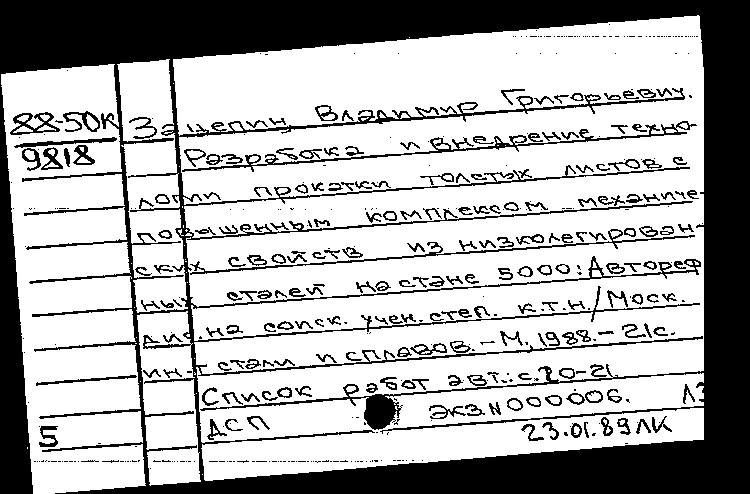 88-50К Зацепин, Владимир Григорьевич.
9818 Разработка и внедрение техно-
логии прокатки толстых листов с
повышенным комплексом механиче-
ских свойств из низколегирован-
ных сталей на стане 5000: Автореф
дис. на соиск. учен. степ. к.т.н/Моск.
ин-т стали и сплавов. – М., 1988. – 21с.
Список работ авт.: с.20-21.
5 ДСП Экз.N 000006. ЛЗ
23.01.89 ЛК